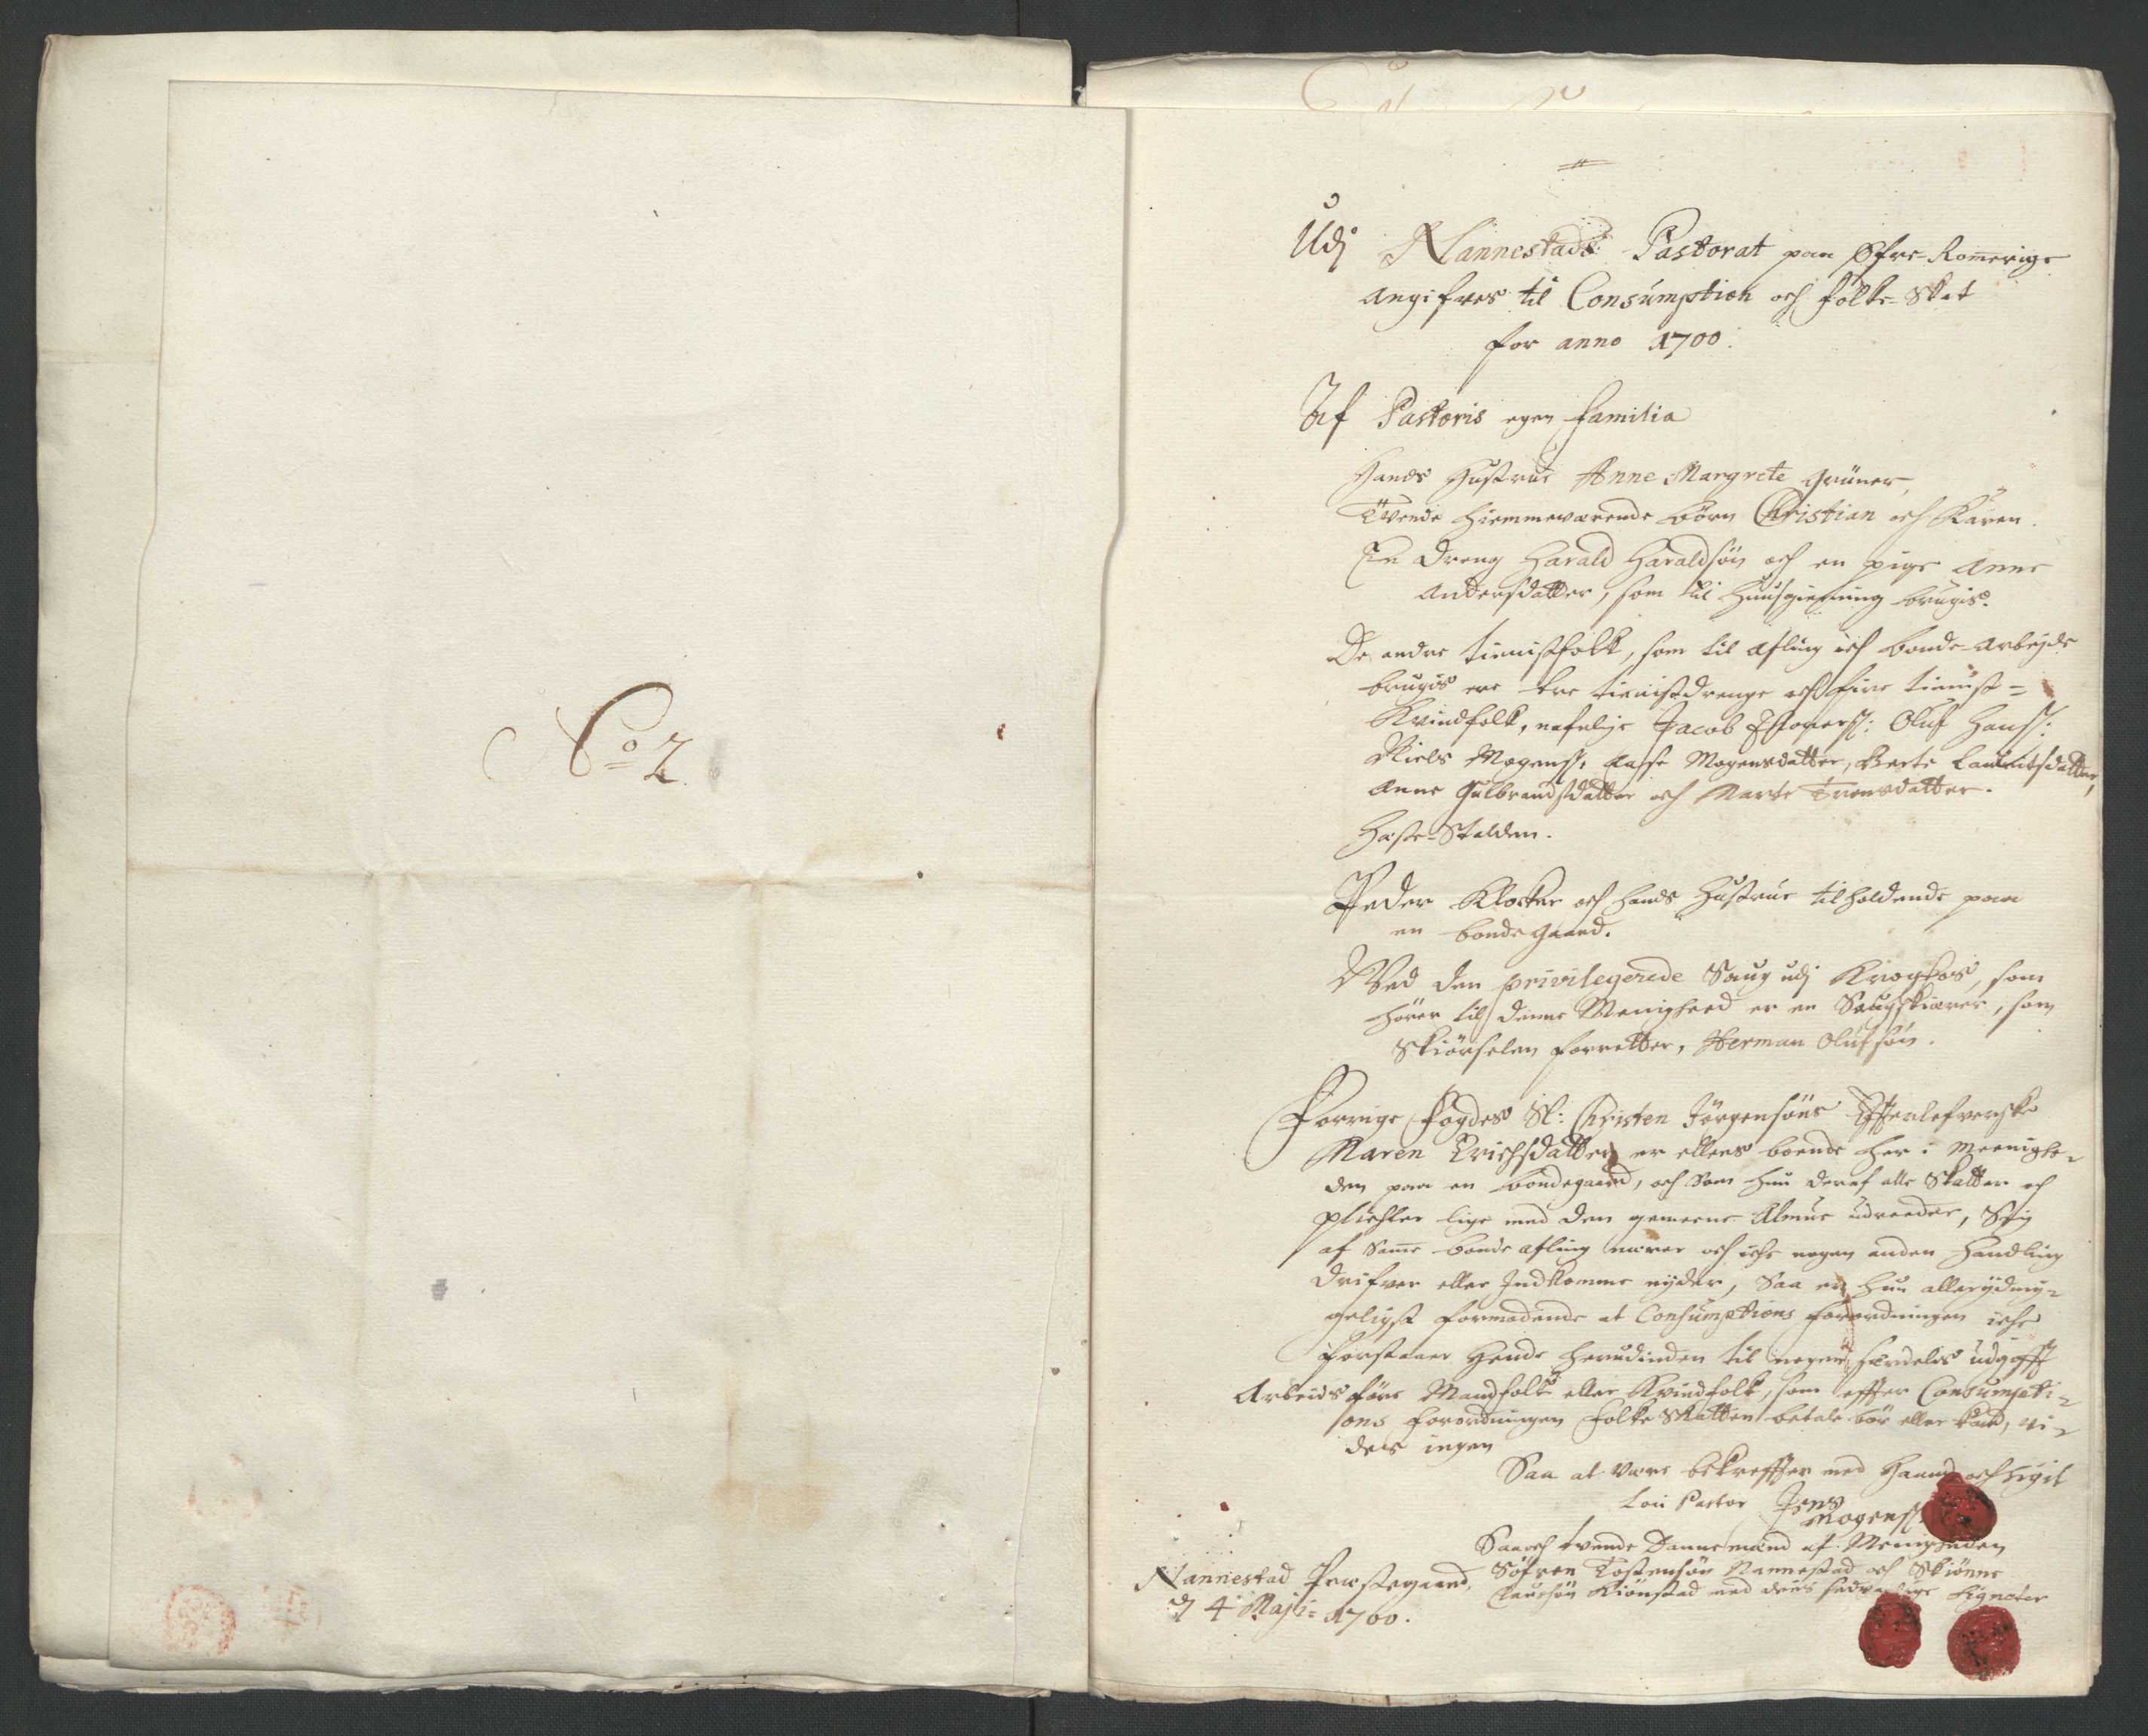 No 2.
Udj Nannestads Pastorat paa Øfre-Romerige
angifves til Consumption och folke-Skat
for anno 1700.
Af Pastoris egen familia
Hands Hustrue Anne Margrete Grüner,
Tvende hiemmeværende børn Christian och Karen.
En dreng Harald Haraldsøn och en pige Anne
Andersdatter, som til huusgierning brugis.
De andre tienistfolk, som til afling och bonde-arbejde
brugis ere tre tienistdrenge och fire tienist=
Kvindfolk, nefnlig Jacob : Oluf Hanss:
Niels Mogenss: Aase Mogensdatter, Berte Lauritsdatter,
Anne Gulbrandsdatter och Marte Tronsdatter.
Heste-Stalden.
Peder Klocker och hands Hustrue tilholdende paa
en bondegaard.
Ved den privilegerede Saug udj Kroghos, som
hører til denne Menighed er en Saugskierer, som
Skiørselen forretter, Herman Olufsøn.
Forrige Fogdes Sl: Christen Jørgensøns Effterlefverske
Maren Erichsdatter er ellers boende her i Meenighe-
den paa en bondegaard, och som hun deraf alle Skatter och
plichter lige med den gemeene Almue udreeder, Sig
af Same bonde afling nærer och iche nogen anden handling
drifver eller Indkomme nyder, Saa er hun allerydmy-
geligst formodende at Consumptions forordningen iche
forstaaer Hende herudinden til nogen særdeles udgifft
Arbeids føre Mandfolk eller Kvindfolk, som effter Consumpti-
ons forordningen folke Skatten betale bør eller kand, vi-
des ingen
Saa at være bekreffter med Haand och Sigil
Loci Pastor Jens
Mogenss.
Saa och tvende Dannemænd af Menigheden
Søfren Tostensøn Nannestad och Skiønne
Kiønstad med deris sedvanlige Signeter
Nannestad Prestegaard,
d 4 Maji: 1700.